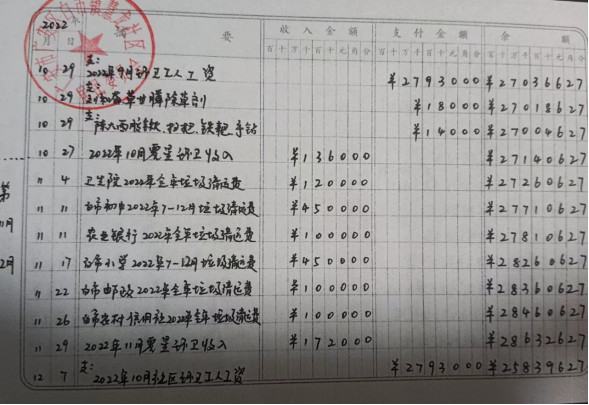 2022
月 日 摘 要 收入金额 支付金额 余 额
百十万千百十元角分 百十万千百十元角分 百十万千百十元角分
10 29 支:2022年9月环卫工人工资 ¥2793000 ¥27036627
10 29 支: 草甘膦除草剂 ¥18000 ¥27018627
10 29 支: 扫把、铁耙、手钻 ¥14000 ¥27004627
10 27 2022年10月零星环卫收入 ¥136000 ¥27140627
11 4 卫生院2022年全年垃圾清运费 ¥120000 ¥27260627
11 11 白市初中2022年7-12月垃圾清运费 ¥450000 ¥27710627
11 11 农业银行2022年全年垃圾清运费 ¥100000 ¥27810627
11 17 白市小学2022年7-12月垃圾清运费 ¥450000 ¥28260627
11 22 白市邮政2022年全年垃圾清运费 ¥100000 ¥28360627
11 26 白市农村信用社2022年全年垃圾清运费 ¥100000 ¥28460627
11 29 2022年11月零星环卫收入 ¥172000 ¥28632627
12 7 支:2022年10月社区环卫工人工资 ¥2793000 ¥25839627
第
11月
2月